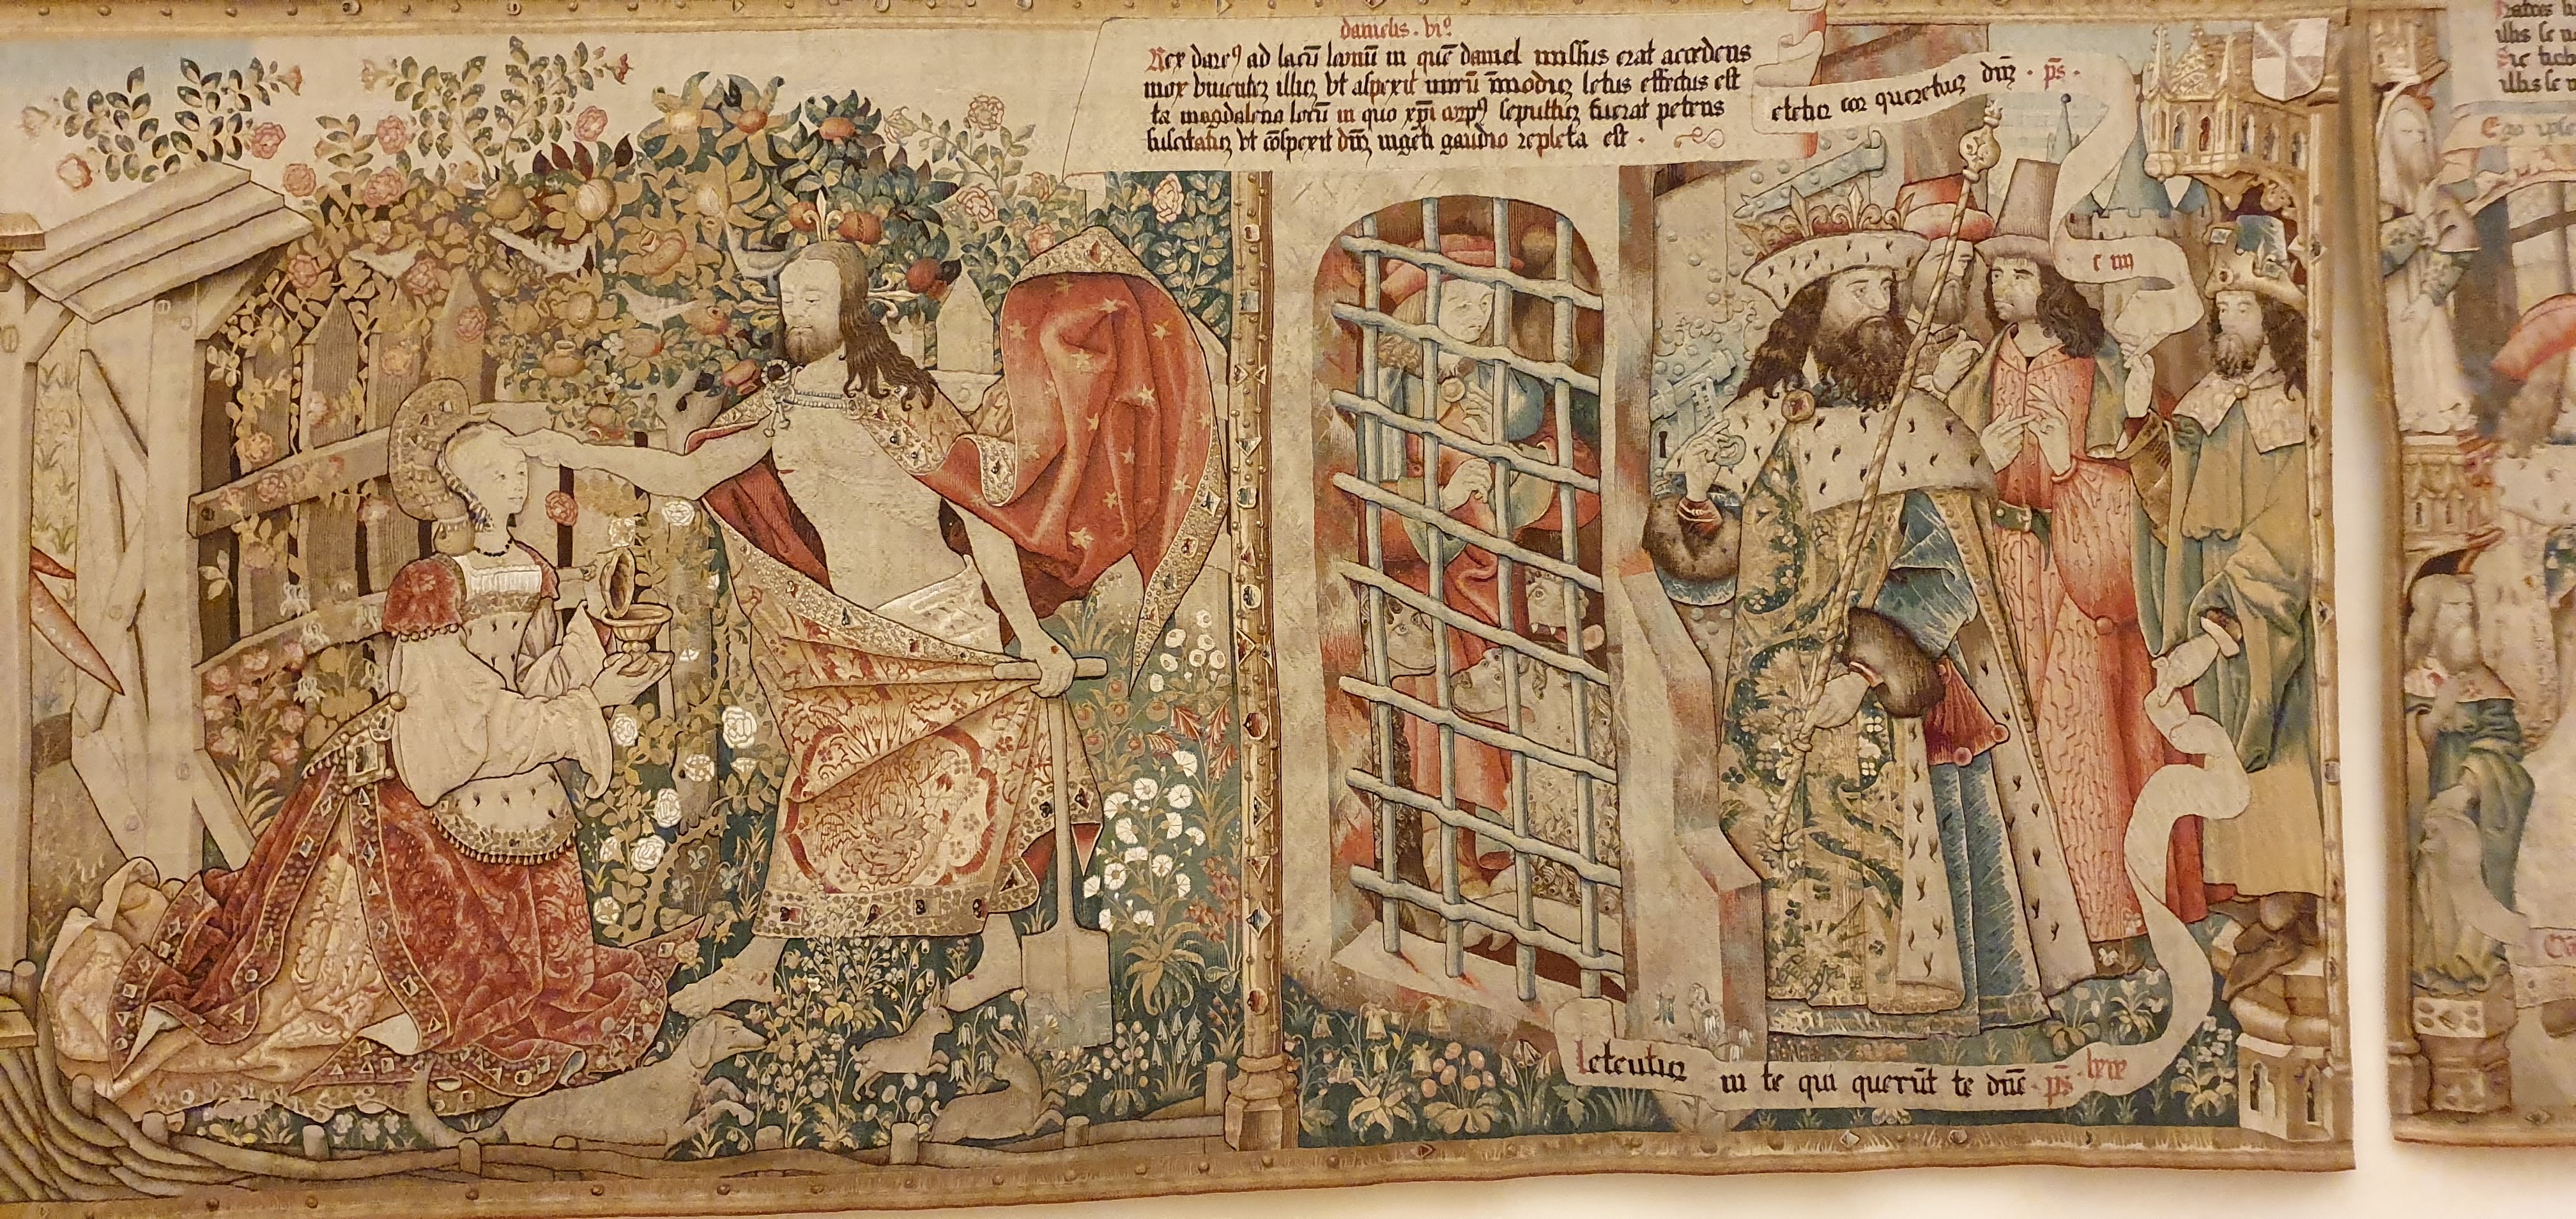 danielis · vi°
Rex dareꝯ ad lacũ leonũ in quẽ daniel missus erat accedens
mox viuentẽ illuꝫ vt aspexit mirũ ĩmoduꝫ letus effectus est
ta magdalena locũ in quo xp̃i corpꝯ sepultuꝫ fuerat petens
suscitatuꝫ vt cõspexit dñꝫ ingẽti gaudio repleta est ·
etetur cor queretiuꝫ dñꝫ · ps̃ ·
c iiii
letentur in te qui querũt te dñe · ps̃ · lxix
Ego